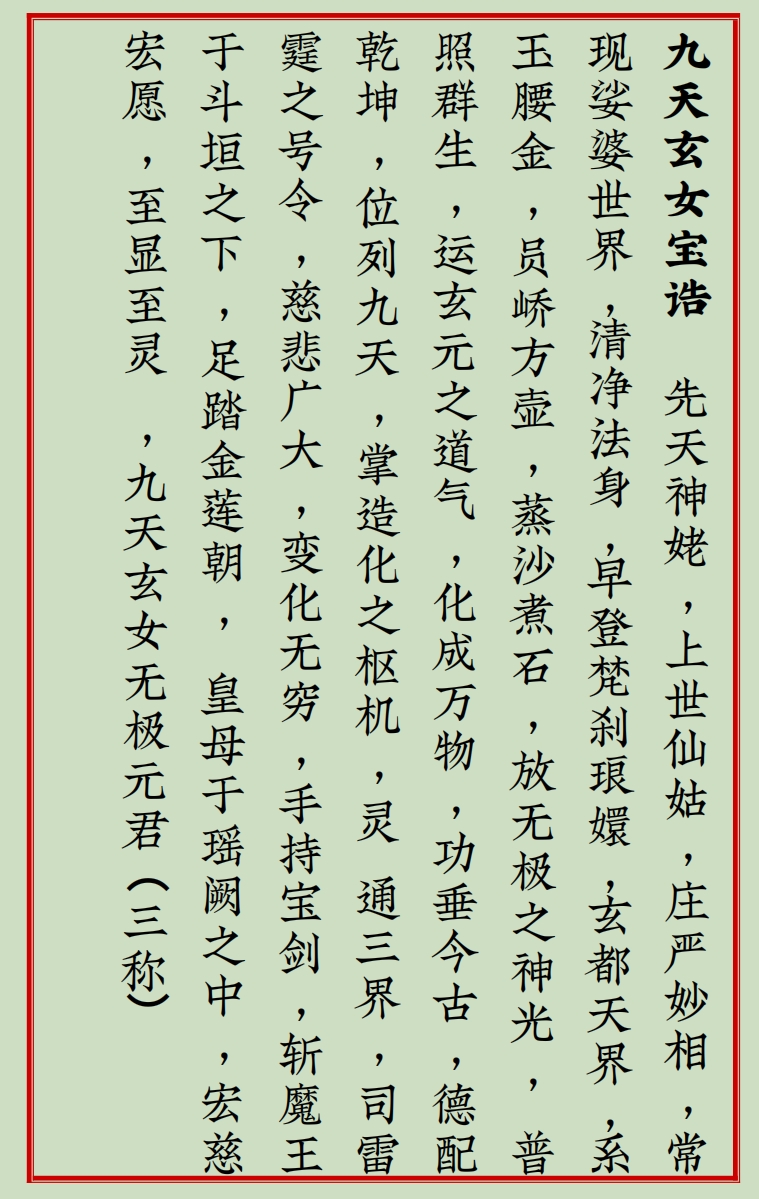 九天玄女宝诰　先天神姥，上世仙姑，庄严妙相，常
现娑婆世界，清净法身，早登梵刹琅嬛，玄都天界，系
玉腰金，员峤方壶，蒸沙煮石，放无极之神光，普
照群生，运玄元之道气，化成万物，功垂今古，德配
乾坤，位列九天，掌造化之枢机，灵 通三界，司雷
霆之号令，慈悲广大，变化无穷，手持宝剑，斩魔王
于斗垣之下，足踏金莲朝， 皇母于瑶阙之中，宏慈
宏愿，至显至灵 ，九天玄女无极元君（三称）